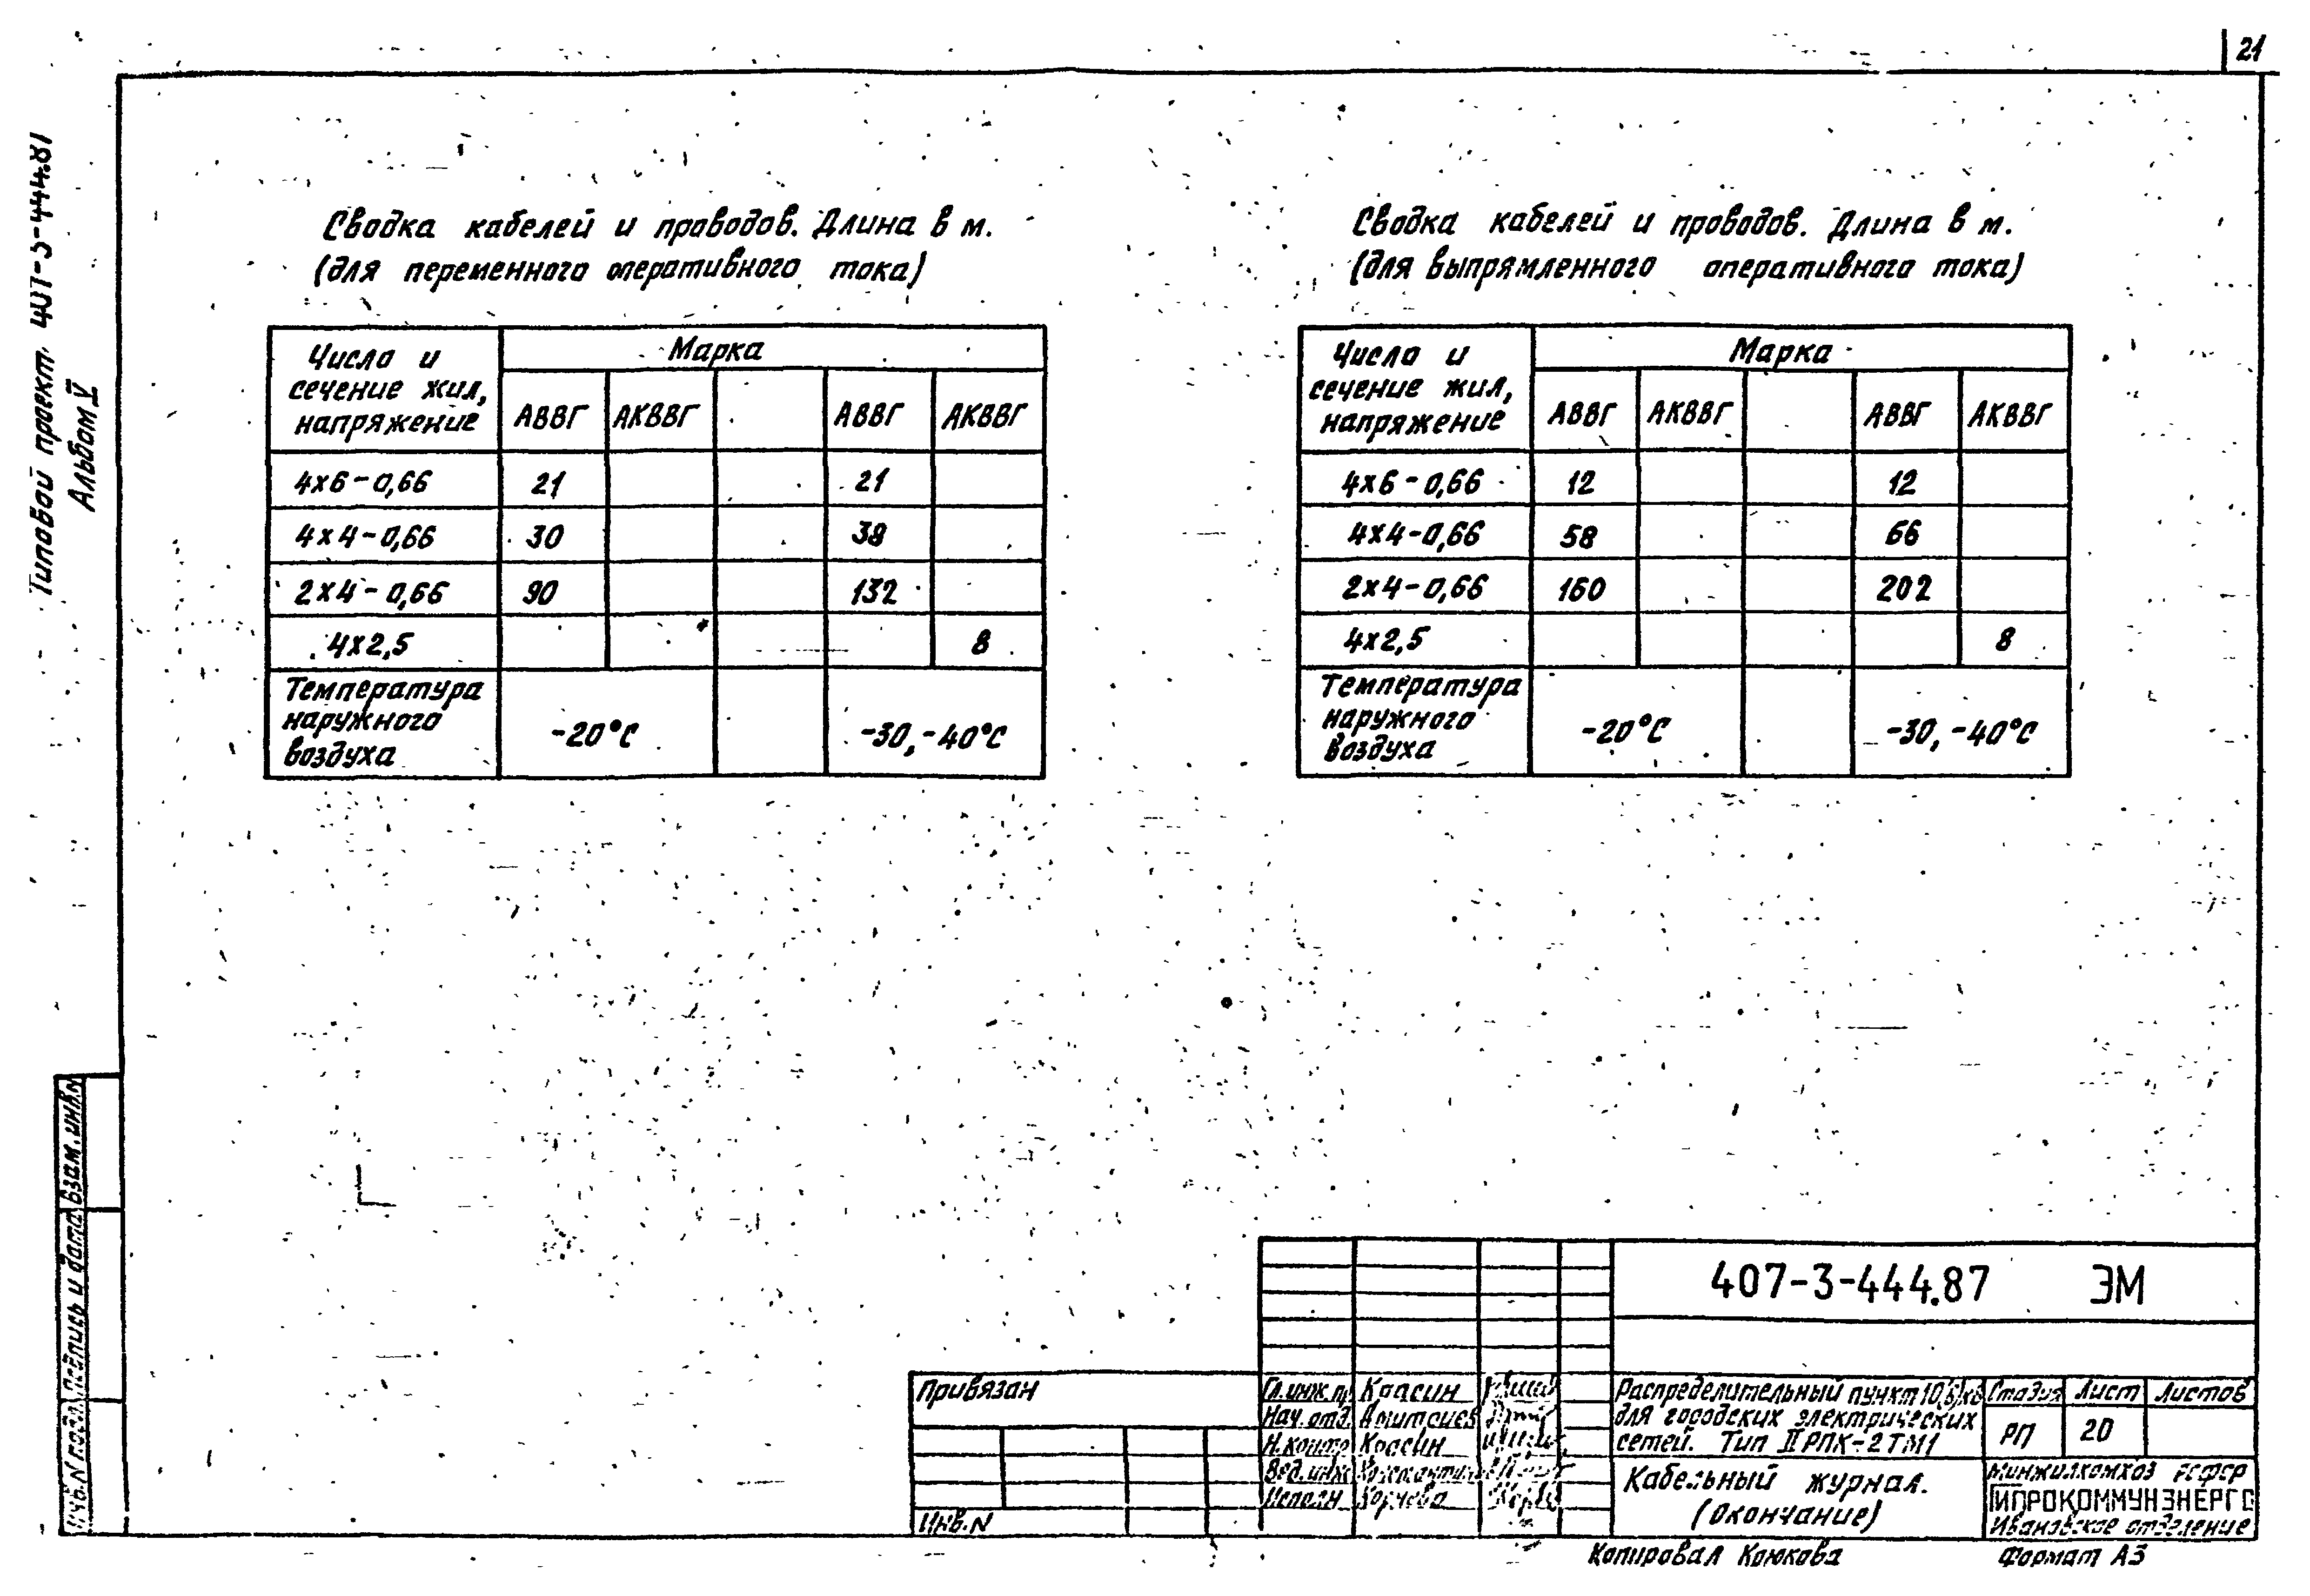 21
Типовой проект 407-3-444.87
Альбом V
Сводка кабелей и проводов. Длина в м.
(для переменного оперативного тока)
Число и
сечение жил,
напряжение
Марка
АВВГ АКВВГ АВВГ АКВВГ
4х6-0,66 21 21
4х4-0,66 30 38
2х4-0,66 90 132
4х2,5 8
Температура
наружного
воздуха
-20°С -30,-40°С
Сводка кабелей и проводов. Длина в м.
(для выпрямленного оперативного тока)
Число и
сечение жил,
напряжение
Марка
АВВГ АКВВГ АВВГ АКВВГ
4х6-0,66 12 12
4х4-0,66 58 66
2х4-0,66 160 202
4х2,5 8
Температура
наружного
воздуха
-20°С -30,-40°С
Взам.инв.N
Подпись и дата
Инв.N подл.
407-3-444.87 ЭМ
Привязан
Инв.N
Гл.инж.пр Красин
Нач.отд.
Н.контр Красин
Вед.инж
Исполн Корнева
Распределительный пункт 10(6)кв
для городских электрических
сетей. Тип II РПК-2ТМ1
Стадия Лист Листов
РП 20
Кабельный журнал.
(Окончание)
Минжилкомхоз РСФСР
ГИПРОКОММУНЭНЕРГО
Ивановское отделение
Копировал Крюкова Формат А3